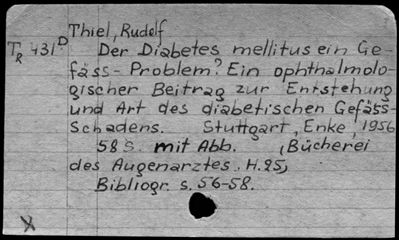 Thiel, Rudolf
TR 431D Der Diabetes mellitus ein Ge-
fäss-Problem? Ein ophthalmolo-
gischer Beitrag zur Entstehung
und Art des diabetischen Gefäss-
Schadens. Stuttgart, Enke, 1956
58 S. mit Abb. (Bücherei
des Augenarztes. H.25)
Bibliogr. s. 56-58.
X